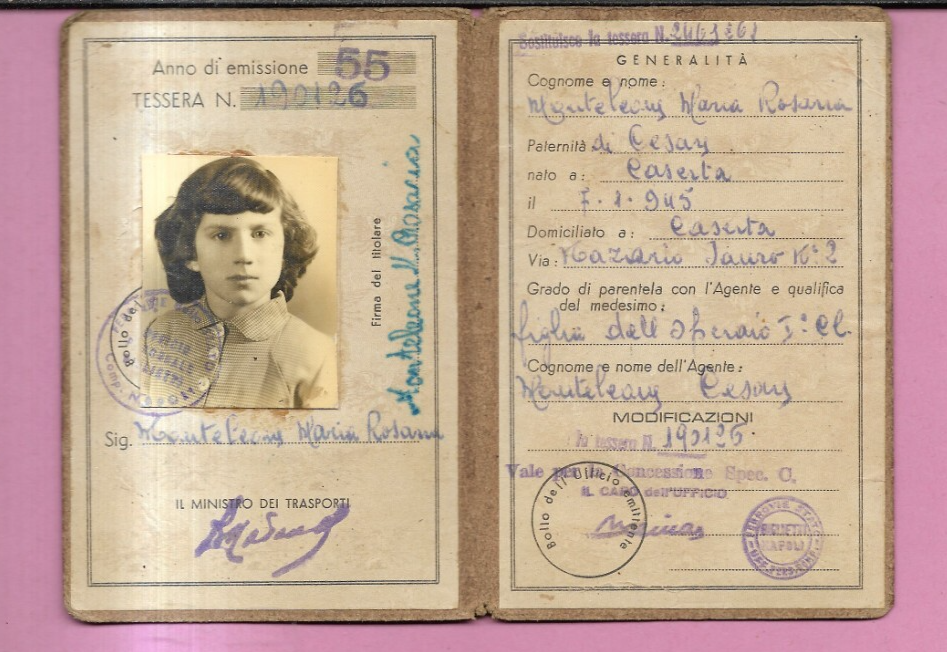 Anno di emissione 55
TESSERA N. 190126
Firma del titolare
Monteleone M Rosaria
Bollo del
Comp. NAPOLI
Sig. Monteleone Maria Rosaria
IL MINISTRO DEI TRASPORTI
Sostituisce la tessera N. 2461261
GENERALITÀ
Cognome e nome:
Monteleone Maria Rosaria
Paternità di Cesare
nato a: Caserta
il 7.1.945
Domiciliato a: Caserta
Via: Nazario Sauro N° 2
Grado di parentela con l'Agente e qualifica
del medesimo:
figlia dell'Operaio I° Cl.
Cognome e nome dell'Agente:
Monteleone Cesare
MODIFICAZIONI
la tessera N. 190126
Vale per la Concessione Spec. C.
IL CAPO dell'UFFICIO
Bollo dell'Ufficio emittente
FERROVIE STATO
BIGLIETTI
NAPOLI